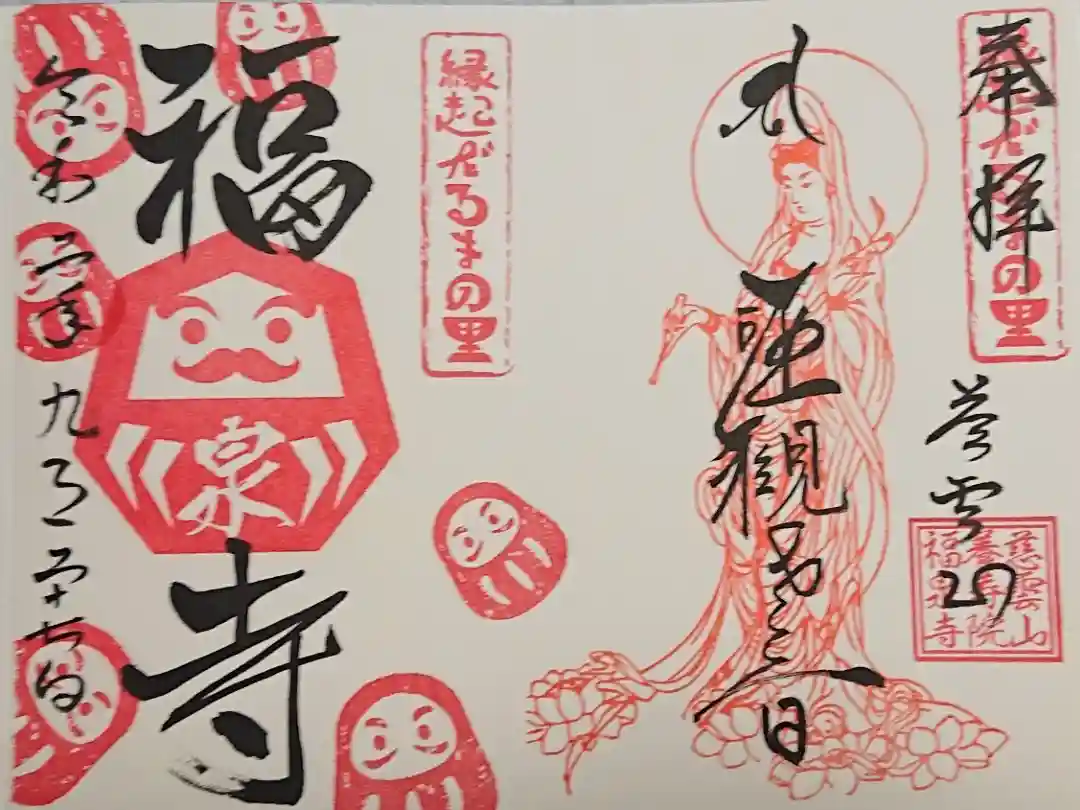 奉拝
縁起だるまの里
慈雲山
慈雲山
養寿院
福泉寺
観世音
縁起だるまの里
福泉寺
令和二年九月二十七日